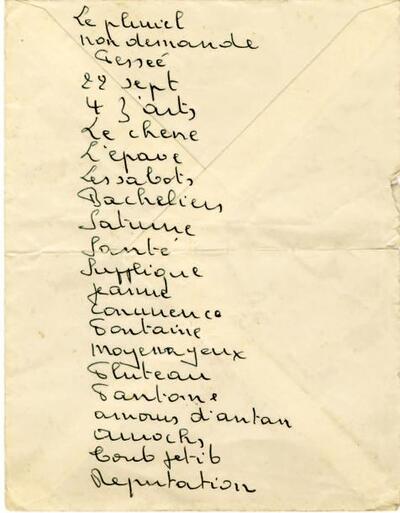 Le pluriel
non demande
Fessée
22 sept
4 z'arts
Le chene
L'épave
Les sabots
Bacheliers
Saturne
Santé
Supplique
Jeanne
Concurence
Fontaine
moyenageux
Fluteau
Fantome
amours d'antan
Reputation